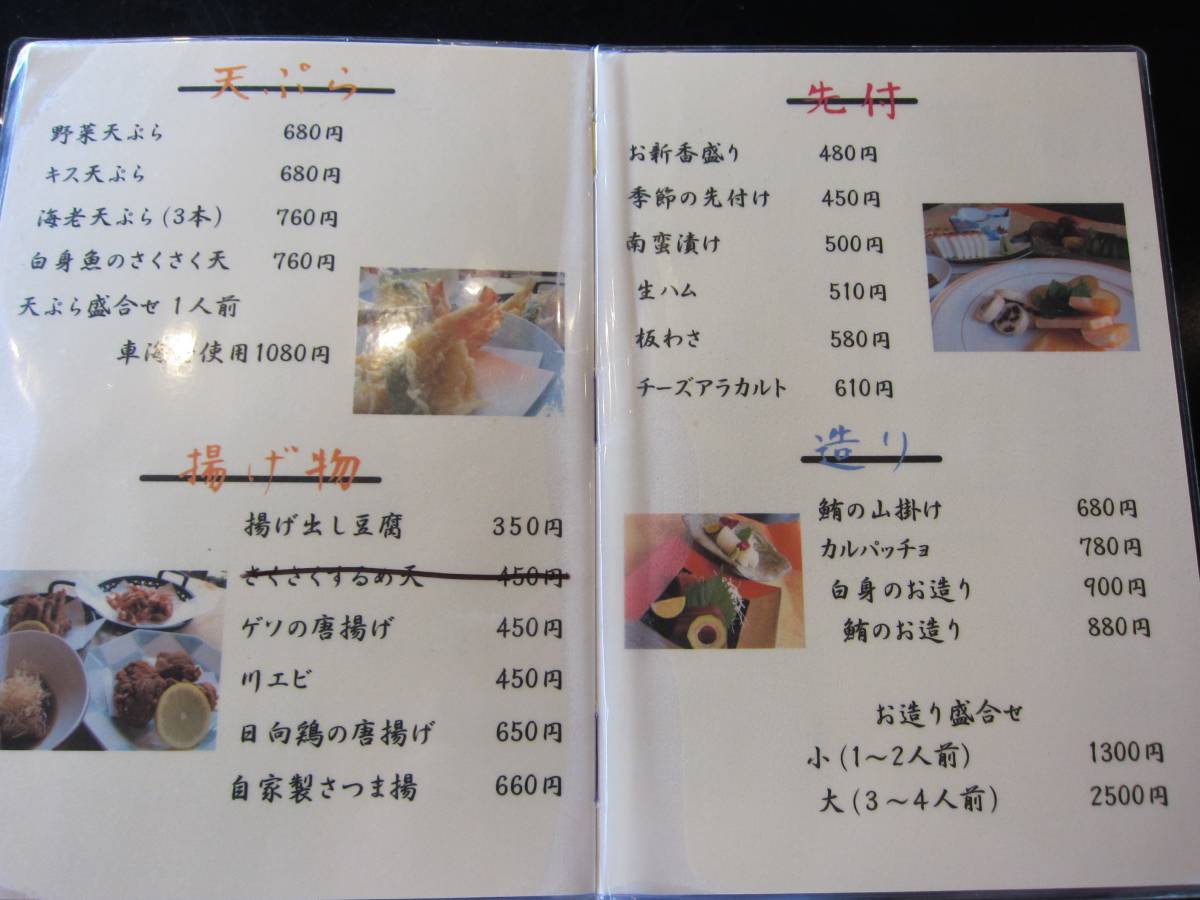 天ぷら
野菜天ぷら 680円
キス天ぷら 680円
海老天ぷら(3本) 760円
白身魚のさくさく天 760円
天ぷら盛合せ 1人前
車海 使用1080円
揚げ物
揚げ出し豆腐 350円
さくさくするめ天 450円
ゲソの唐揚げ 450円
川エビ 450円
日向鶏の唐揚げ 650円
自家製さつま揚 660円
先付
お新香盛り 480円
季節の先付け 450円
南蛮漬け 500円
生ハム 510円
板わさ 580円
チーズアラカルト 610円
造り
鮪の山掛け 680円
カルパッチョ 780円
白身のお造り 900円
鮪のお造り 880円
お造り盛合せ
小(1～2人前) 1300円
大(3～4人前) 2500円